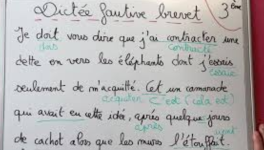 Dictée fautive brevet 3ème
Je doit vous dire que j'ai contracter une
dois contracté
dette en vers les éléphants dont j'essais
essaie
seulement de m'acquitté. Cet un camarade
acquitter C'est (cela est)
qui avait eu cette idée, après quelque jours
après
de cachot alors que les mures l'étouffait.